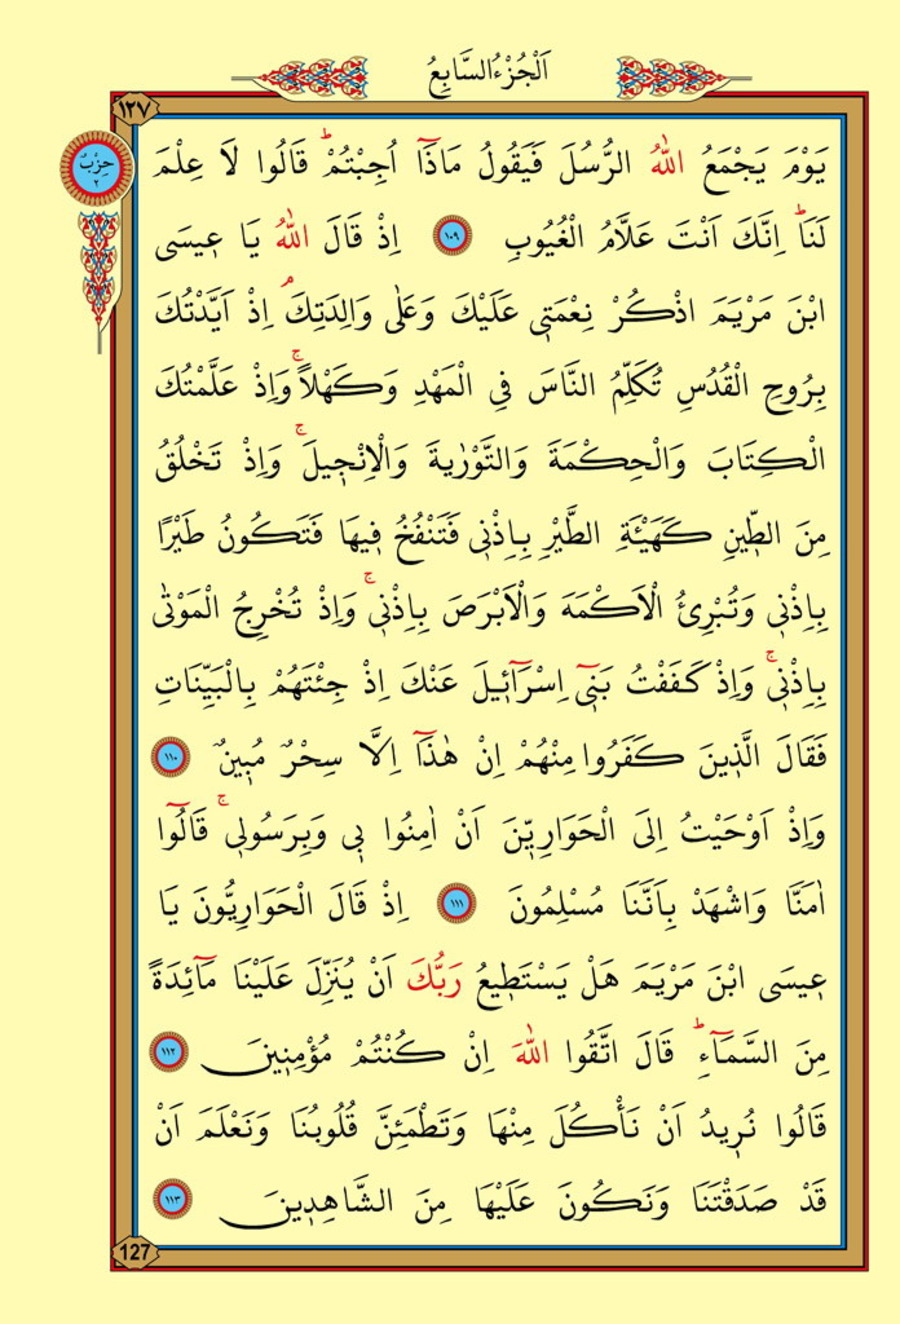 اَلْجُزْءُ السَّابِعُ
١٢٧
حِزْبٌ
٢
يَوْمَ يَجْمَعُ اللّٰهُ الرُّسُلَ فَيَقُولُ مَاذَٓا اُجِبْتُمْۜ قَالُوا لَا عِلْمَ
لَنَاۜ اِنَّكَ اَنْتَ عَلَّامُ الْغُيُوبِ ١٠٩ اِذْ قَالَ اللّٰهُ يَا ع۪يسَى
ابْنَ مَرْيَمَ اذْكُرْ نِعْمَت۪ي عَلَيْكَ وَعَلٰى وَالِدَتِكَۢ اِذْ اَيَّدْتُكَ
بِرُوحِ الْقُدُسِ تُكَلِّمُ النَّاسَ فِي الْمَهْدِ وَكَهْلًاۚ وَاِذْ عَلَّمْتُكَ
الْكِتَابَ وَالْحِكْمَةَ وَالتَّوْرٰيةَ وَالْاِنْج۪يلَۚ وَاِذْ تَخْلُقُ
مِنَ الطّ۪ينِ كَهَيْـَٔةِ الطَّيْرِ بِاِذْن۪ي فَتَنْفُخُ ف۪يهَا فَتَكُونُ طَيْرًا
بِاِذْن۪ي وَتُبْرِئُ الْاَكْمَهَ وَالْاَبْرَصَ بِاِذْن۪يۚ وَاِذْ تُخْرِجُ الْمَوْتٰى
بِاِذْن۪يۚ وَاِذْ كَفَفْتُ بَن۪ٓي اِسْرَٓائ۪يلَ عَنْكَ اِذْ جِئْتَهُمْ بِالْبَيِّنَاتِ
فَقَالَ الَّذ۪ينَ كَفَرُوا مِنْهُمْ اِنْ هٰذَٓا اِلَّا سِحْرٌ مُب۪ينٌ ١١٠
وَاِذْ اَوْحَيْتُ اِلَى الْحَوَارِيّ۪نَ اَنْ اٰمِنُوا ب۪ي وَبِرَسُول۪يۚ قَالُٓوا
اٰمَنَّا وَاشْهَدْ بِاَنَّنَا مُسْلِمُونَ ١١١ اِذْ قَالَ الْحَوَارِيُّونَ يَا
ع۪يسَى ابْنَ مَرْيَمَ هَلْ يَسْتَط۪يعُ رَبُّكَ اَنْ يُنَزِّلَ عَلَيْنَا مَٓائِدَةً
مِنَ السَّمَٓاءِۜ قَالَ اتَّقُوا اللّٰهَ اِنْ كُنْتُمْ مُؤْمِن۪ينَ ١١٢
قَالُوا نُر۪يدُ اَنْ نَأْكُلَ مِنْهَا وَتَطْمَئِنَّ قُلُوبُنَا وَنَعْلَمَ اَنْ
قَدْ صَدَقْتَنَا وَنَكُونَ عَلَيْهَا مِنَ الشَّاهِد۪ينَ ١١٣
127